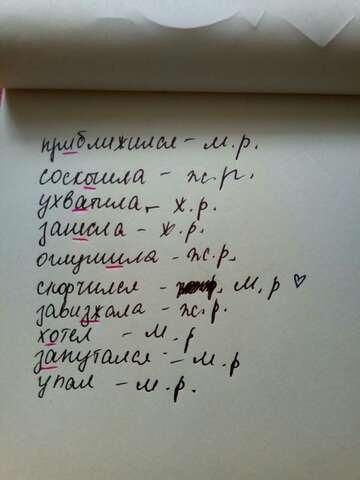 приближился - м.р.
соскошила - ж.р.
ухватила - ж.р.
зашела - ж.р.
оглушила - ж.р.
скорчился - м.р ♡
завизжала - ж.р.
хотел - м.р
запутался - м.р
упал - м.р.